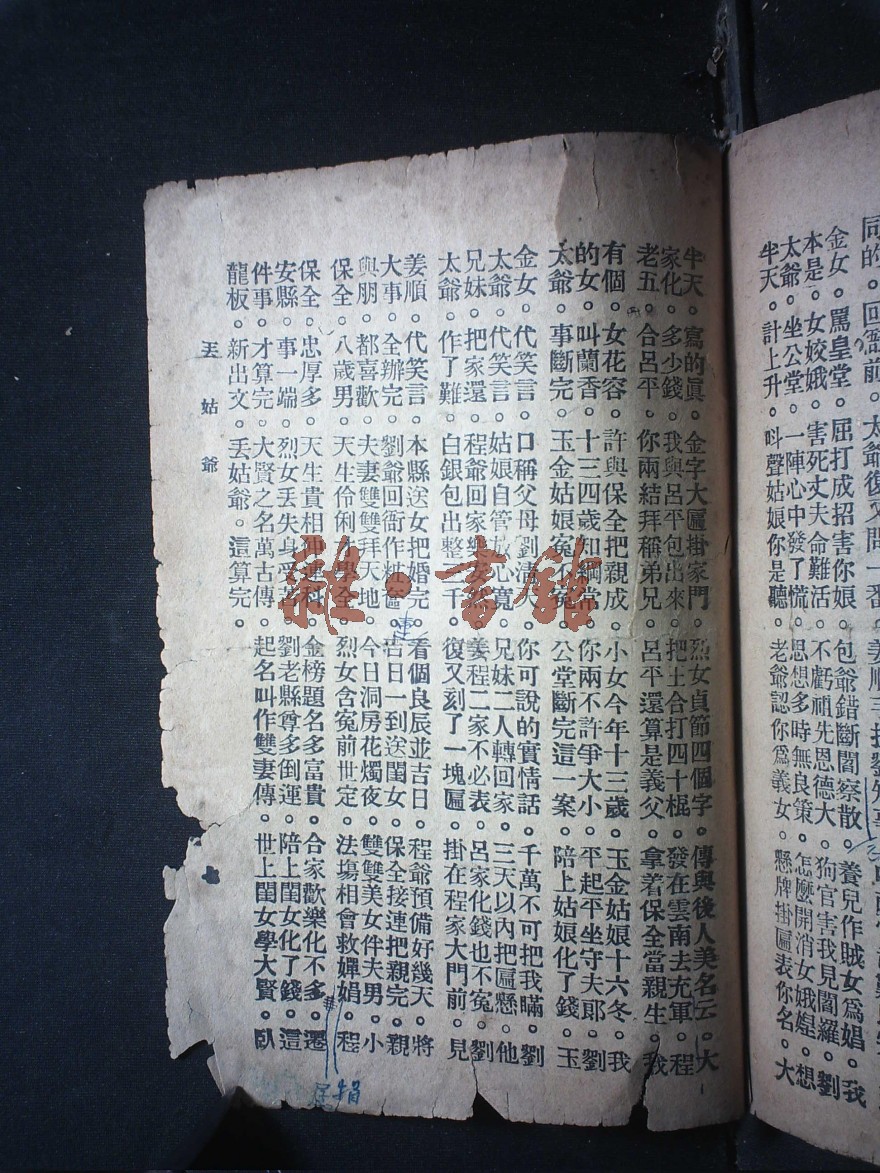 同的。回衙前。太爺復又問一番。姜順
金女。罵皇堂。屈打成招害你娘。包爺錯斷閻察散。養兒作賊女為娼。我
本是。女姣娥。害死丈夫命難活。不虧祖先恩德大。狗官害我見閻羅。劉
太爺。坐公堂。一陣心中發了慌。思想多時無良策。怎麼開消女娥媓。想
半天。計上升。叫聲姑娘你是聽。老爺認你爲義女。懸牌掛匾表你名。大
半天。寫的眞。金字大匾掛家門。烈女貞節四個字。傳與後人美名云。大
家化。多少錢。我與呂平包出來。把土合打四十棍。發在雲南去充軍。程
老五。合呂平。你兩結拜稱弟兄。呂平還算是義父。拿着保全當親生。我
有個。女花容。許與保全把親成。小女今年十三歲。玉金姑娘十六冬。我
的女。叫蘭香。十三四歲知綱常。你兩不許爭大小。平起平坐守夫郎。劉
太爺。事斷完。玉金姑娘冤不冤。公堂斷完這一案。陪上姑娘化了錢。玉
金女。代笑言。口稱父母劉清天。你可說的實情話。千萬不可把我瞞。劉
太爺。代笑言。姑娘自管放心寬。兄妹二人轉回家。三天以內把匾懸。他
兄妹。把家還。程爺回家樂安然。姜程二家不必表。呂家化錢也不冤。劉
太爺。作了難。白銀包出整一千。復又刻了一塊匾。掛在程家大門前。見
姜順。代笑言。本縣送女把婚完。看個良辰並吉日。程爺預備好幾天。將
大事。全辦完。劉爺回衙作粧奩。吉日一到送閨女。保全接連把親完。親
與朋。都喜歡。夫妻雙雙拜天地。今日洞房花燭夜。雙雙美女件夫男。小
保全。八歲男。天生伶俐 學全。烈女含冤前世定。法場相會救嬋娟。程
保全。忠厚多。天生貴相 連科。金榜題名多富貴。合家歡樂化不多。遷
安縣。事一端。烈女丟失身受苦。劉老縣尊多倒運。陪上閨女化了錢。這
件事。才算完。大賢之名萬古傳。起名叫作雙妻傳。世上閨女學大賢。臥
龍板。新出文。丟姑爺。這算完。
丟姑爺
雜·書館